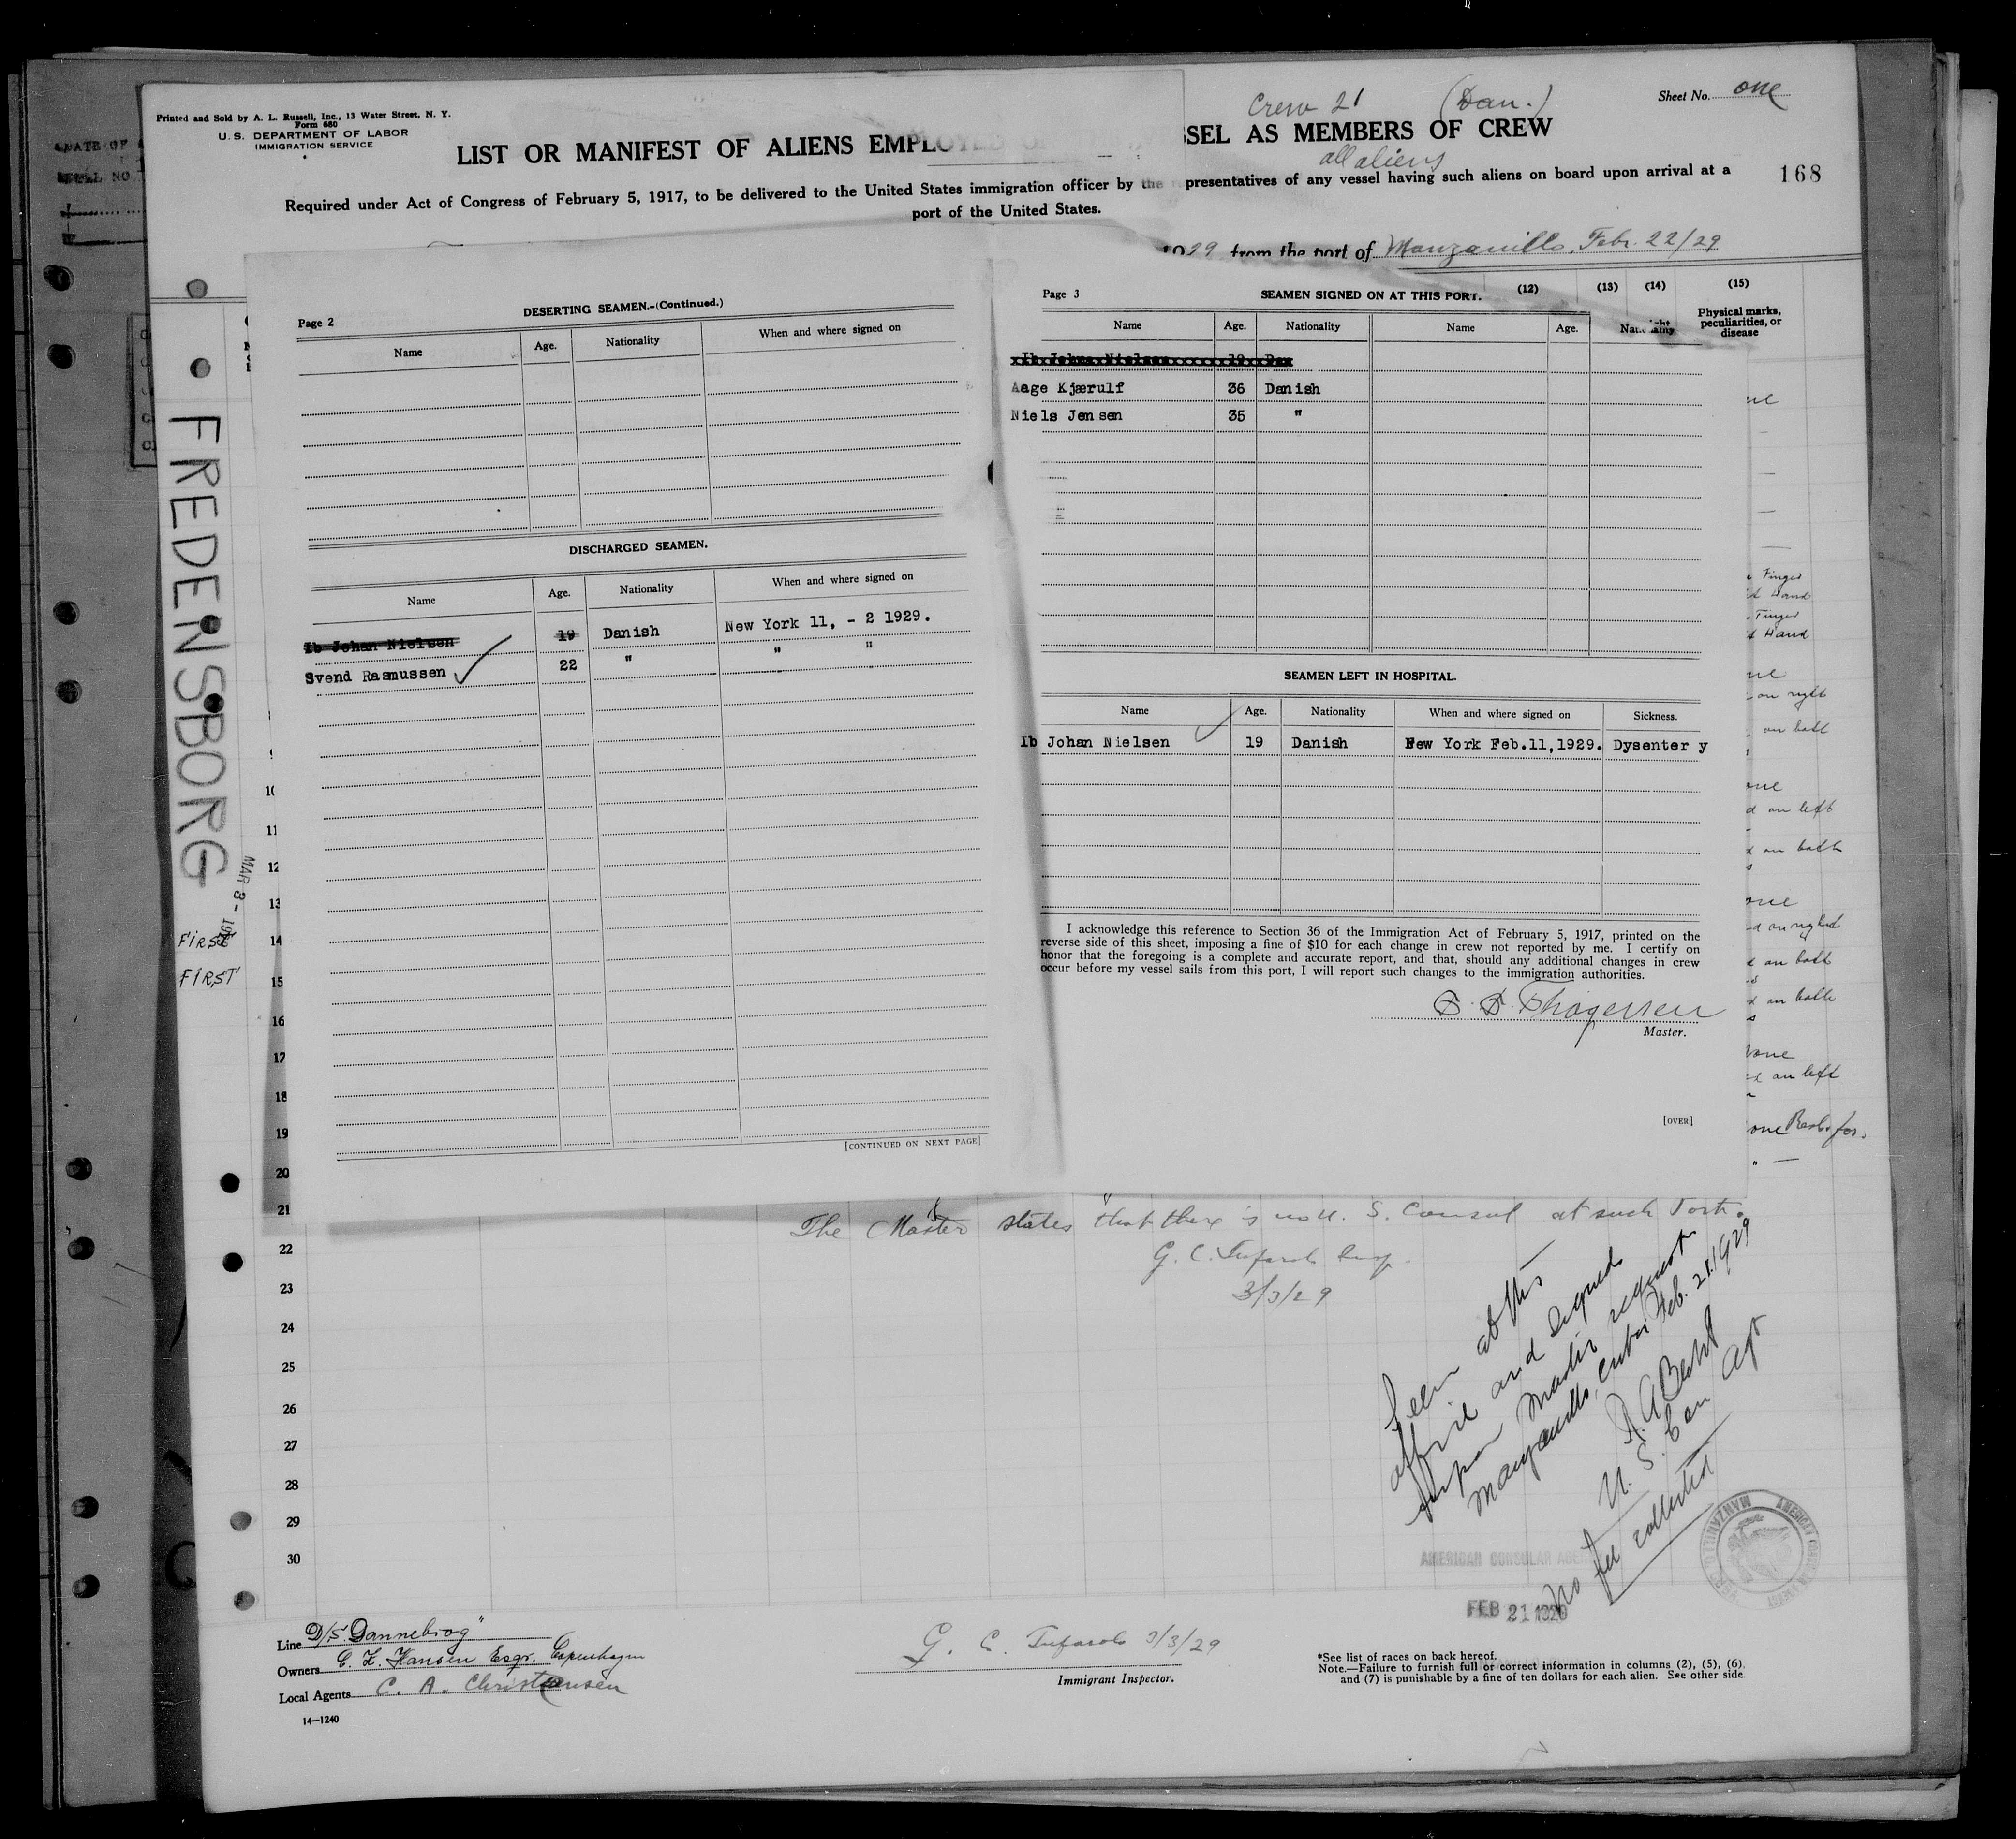 Printed and Sold by A. L. Russell, Inc., 13 Water Street, N. Y.
Form 680
U. S. DEPARTMENT OF LABOR
IMMIGRATION SERVICE
Crew 21 (Dan.)
Sheet No. one
LIST OR MANIFEST OF ALIENS EMPLOYED SSEL AS MEMBERS OF CREW
all aliens
Required under Act of Congress of February 5, 1917, to be delivered to the United States immigration officer by the representatives of any vessel having such aliens on board upon arrival at a
port of the United States.
168
1929 from the port of Manzanillo, Febr. 22/29
(12) (13) (14) (15)
Physical marks, peculiarities, or disease
FREDENSBORG
MAR 8 - 1929
FIRST
FIRST
Page 2
DESERTING SEAMEN.-(Continued.)
Name Age. Nationality When and where signed on
DISCHARGED SEAMEN.
Name Age. Nationality When and where signed on
Ib Johan Nielsen 19 Danish New York 11, - 2 1929.
Svend Rasmussen 22 " " "
[CONTINUED ON NEXT PAGE]
Page 3
SEAMEN SIGNED ON AT THIS PORT.
Name Age. Nationality Name Age. Nationality
Ib Johan Nielsen 19 Dan
Aage Kjærulf 36 Danish
Niels Jensen 35 "
SEAMEN LEFT IN HOSPITAL.
Name Age. Nationality When and where signed on Sickness.
Ib Johan Nielsen 19 Danish New York Feb.11,1929. Dysenter y
I acknowledge this reference to Section 36 of the Immigration Act of February 5, 1917, printed on the
reverse side of this sheet, imposing a fine of $10 for each change in crew not reported by me. I certify on
honor that the foregoing is a complete and accurate report, and that, should any additional changes in crew
occur before my vessel sails from this port, I will report such changes to the immigration authorities.
Thøgersen
Master.
[OVER]
Finger
Hand
Finger
Hand
on right
on both
on left
on both
on right
on both
on both
on left
10
11
12
13
14
15
16
17
18
19
20
21
22
23
24
25
26
27
28
29
30
The Master states that there is no U. S. Consul at such Port.
G. C. Tufarolo Insp.
3/3/29
Seen at this
office and signed
upon Master request
Manzanillo, Cuba Feb. 21. 1929
U. S. Con Agt
No fee collected
AMERICAN CONSULAR AGE
FEB 21 1929
AMERICAN CONSULAR AGENCY MANZANILLO
Line D/S. Dannebrog"
Owners C. K. Hansen Esqr. Copenhagen
Local Agents C. A. Christensen
14—1240
G. C. Tufarolo 3/3/29
Immigrant Inspector.
*See list of races on back hereof.
Note.—Failure to furnish full or correct information in columns (2), (5), (6),
and (7) is punishable by a fine of ten dollars for each alien. See other side